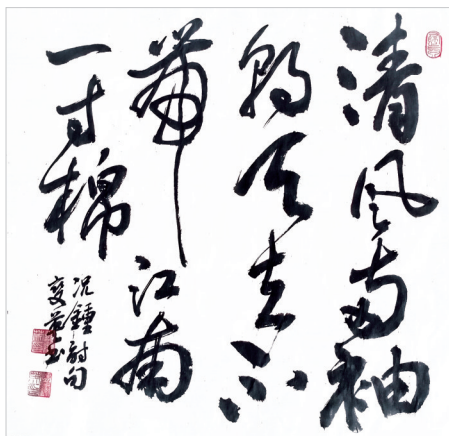 清风两袖
朝天去不
帶江南
一寸棉
况鍾詩句